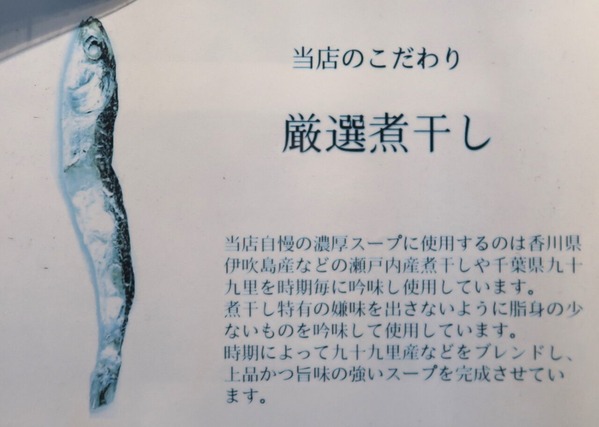 当店のこだわり
厳選煮干し
当店自慢の濃厚スープに使用するのは香川県
伊吹島産などの瀬戸内産煮干しや千葉県九十
九里を時期毎に吟味し使用しています。
煮干し特有の嫌味を出さないように脂身の少
ないものを吟味して使用しています。
時期によって九十九里産などをブレンドし、
上品かつ旨味の強いスープを完成させてい
ます。